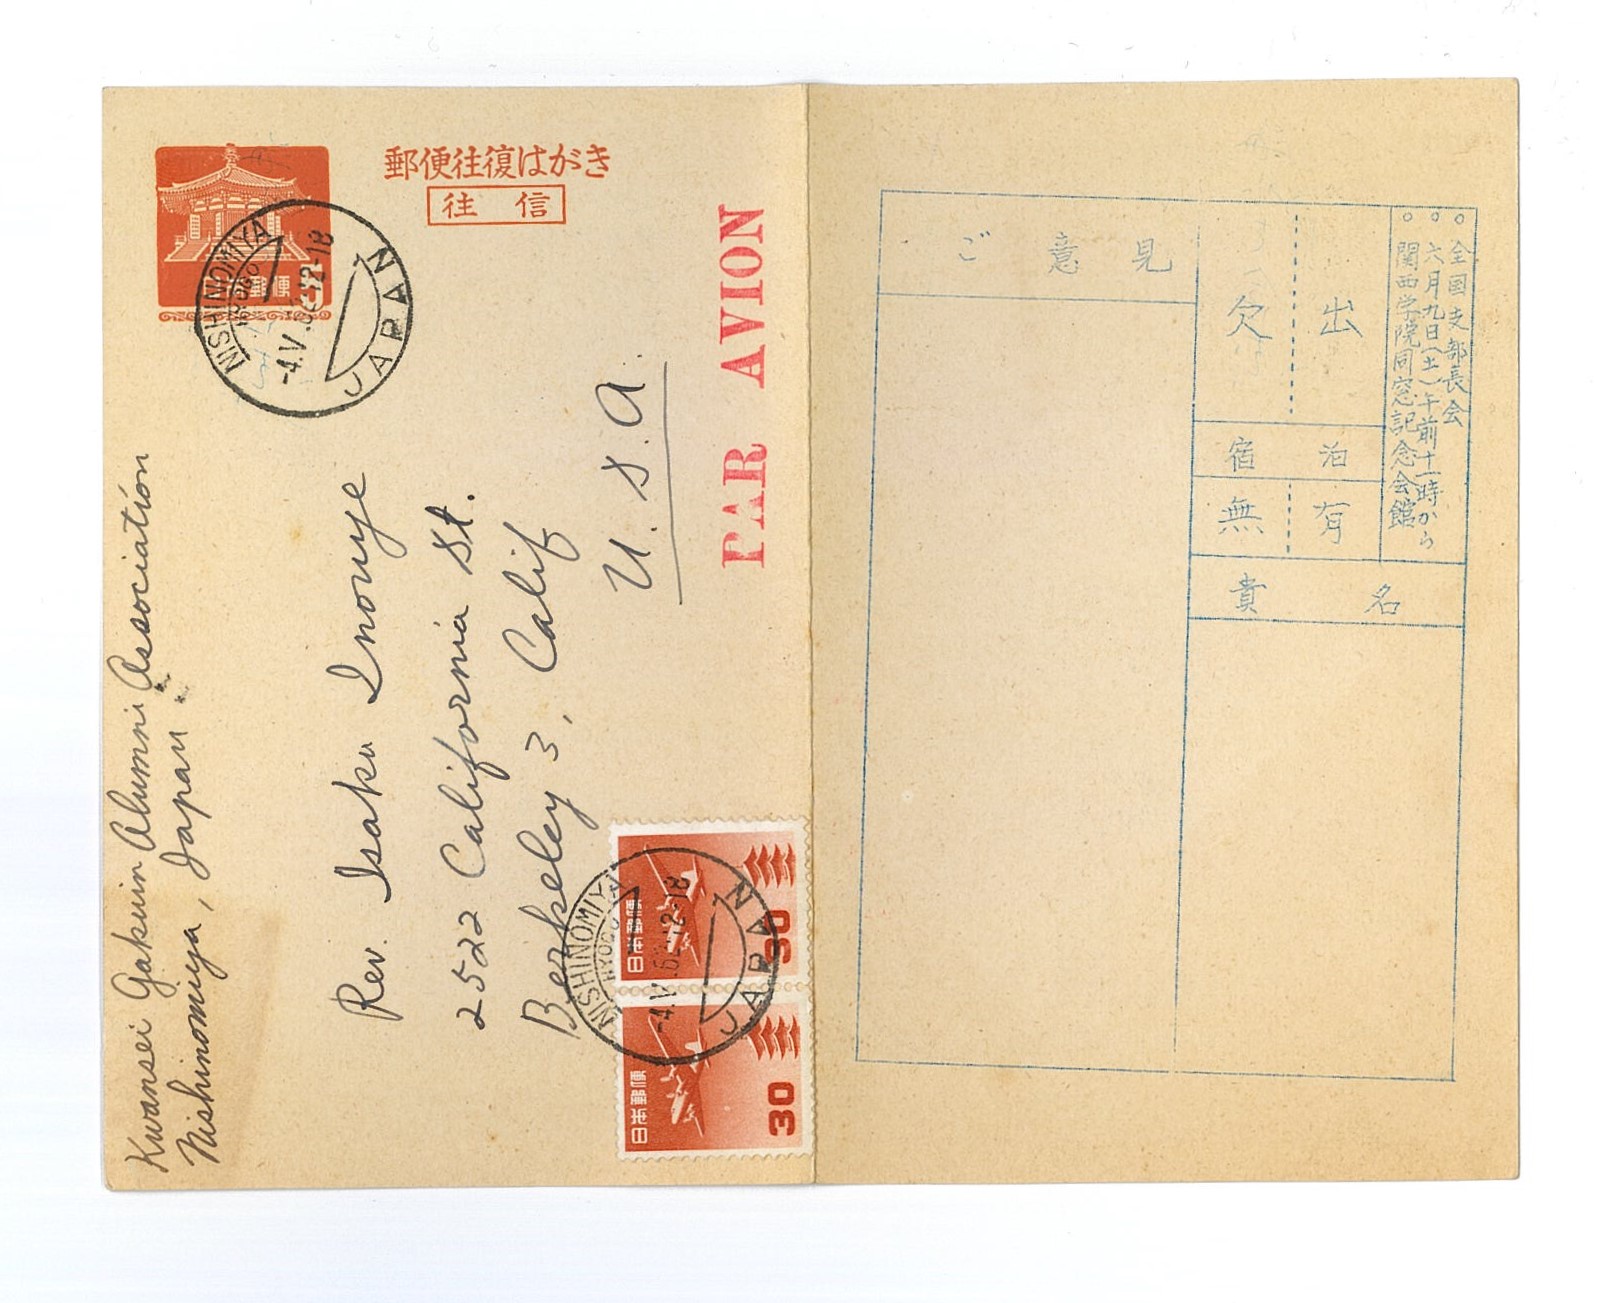 郵便往復はがき
往信
日本郵便
5
NISHINOMIYA
HYOGO
-4.V.62.12-18
JAPAN
PAR AVION
Kwansei Gakuin Alumni Association
Nishinomiya, Japan
Rev. Isaku Inouye
2522 California St.
Berkeley 3, Calif
U.S.A.
日本郵便
30
日本郵便
30
NISHINOMIYA
HYOGO
-4.V.62.12-18
JAPAN
○全国支部長会
○六月九日(土)午前十一時から
○関西学院同窓記念会館
出
欠
宿泊
有
無
貴名
ご意見